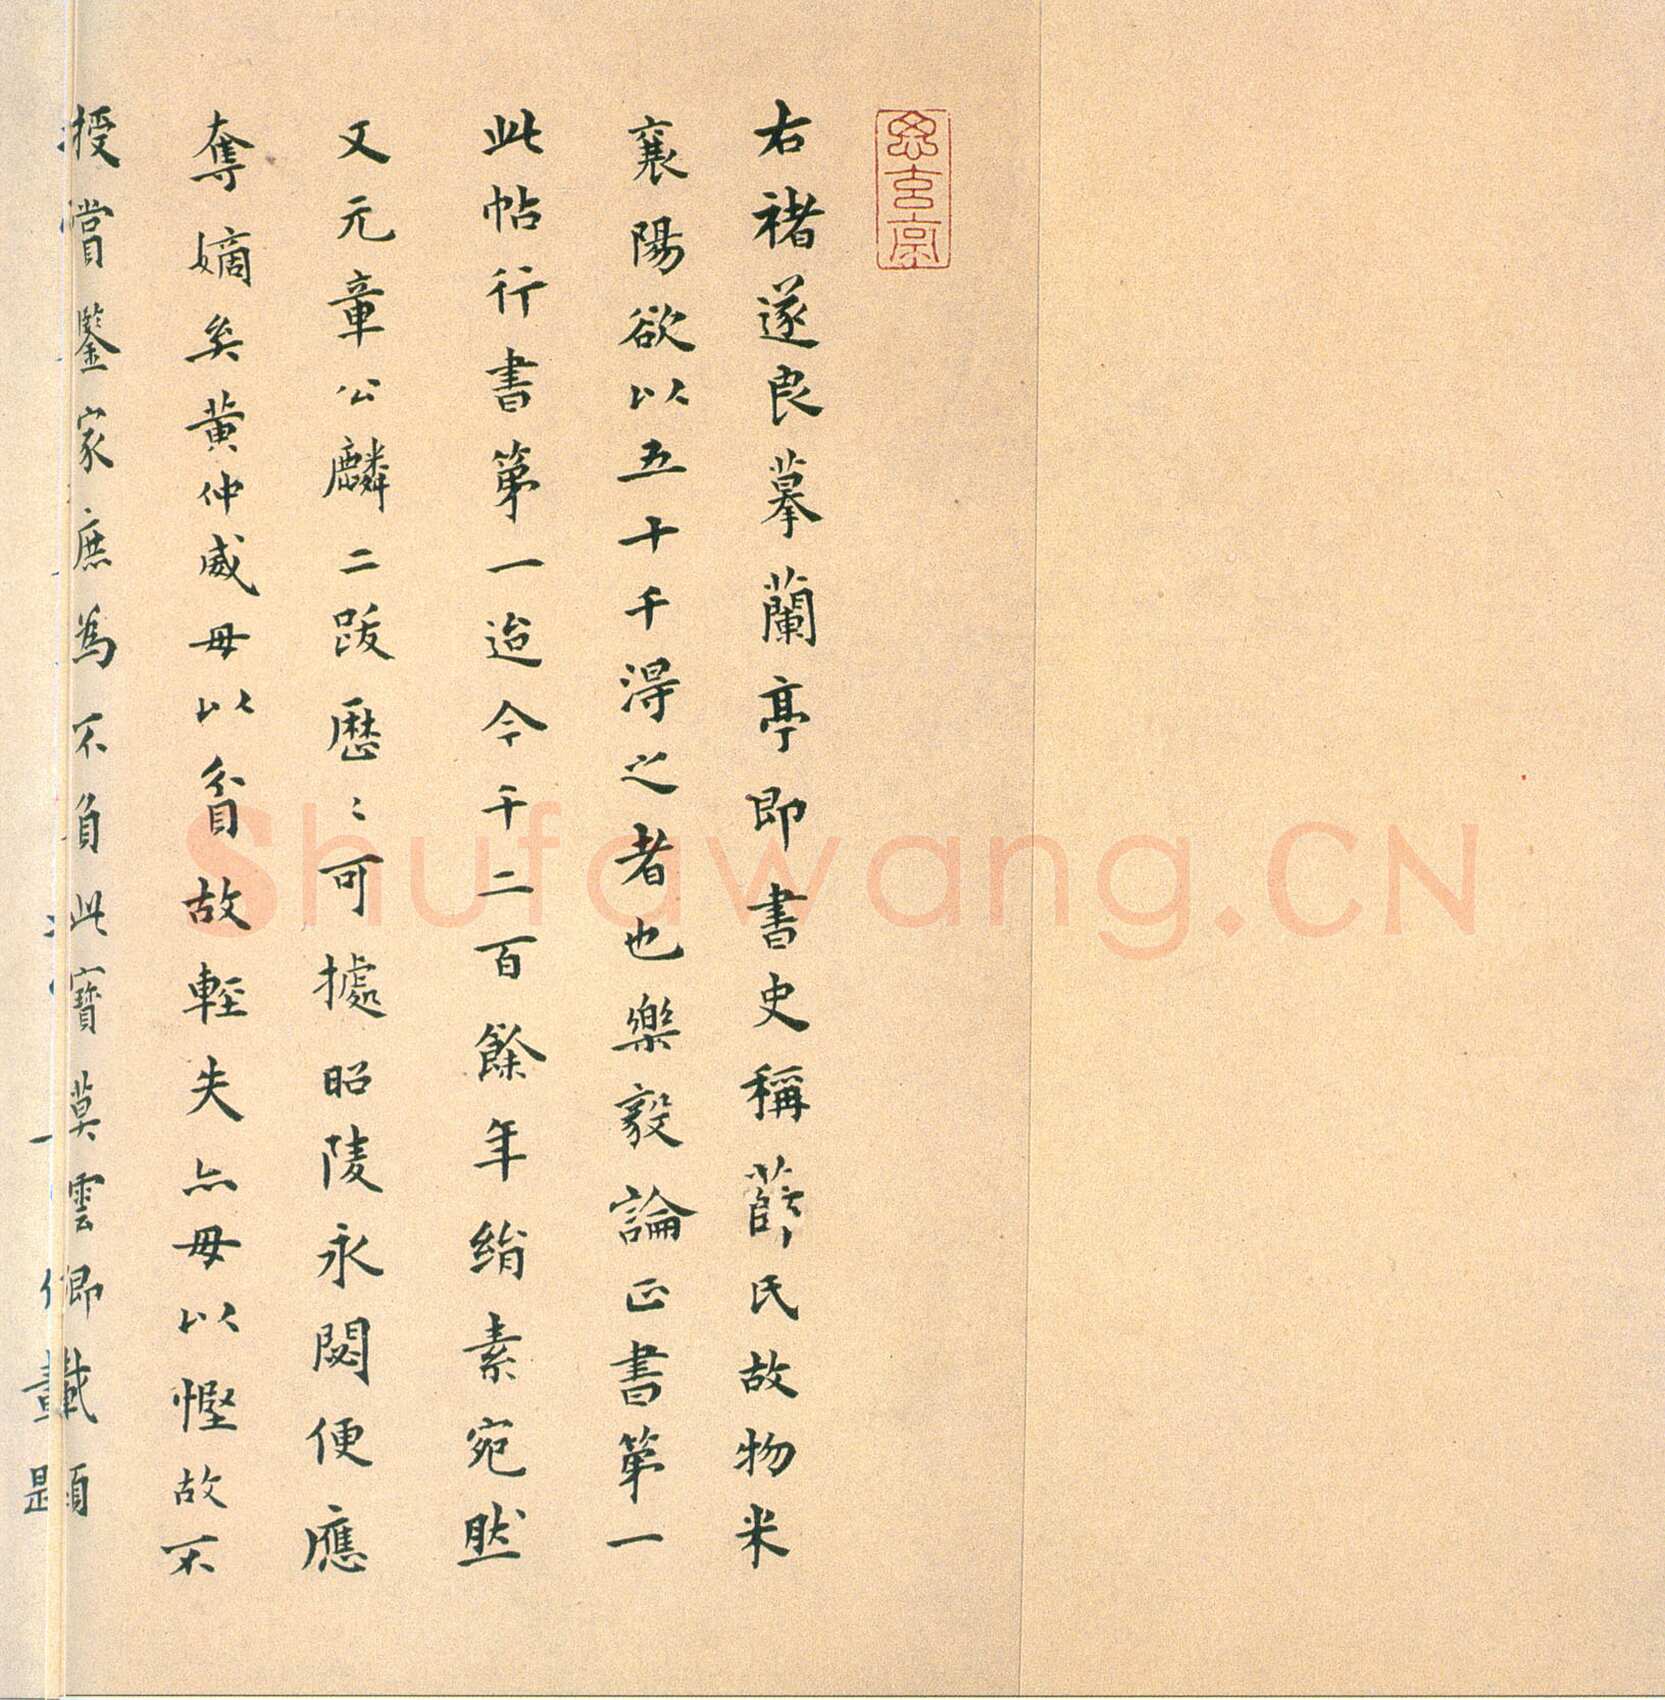 玄亭
右褚遂良摹蘭亭即書史稱薛氏故物米
襄陽欲以五十千得之者也樂毅論正書第一
此帖行書第一迨今千二百餘年絹素宛然
文元章公麟二跋歷〻可據昭陵永閟便應
奪嫡矣黃仲威毋以貧故輕失亦毋以慳故不
授賞鑒家庶為不負此寶莫雲卿戴題
Shufawang.CN